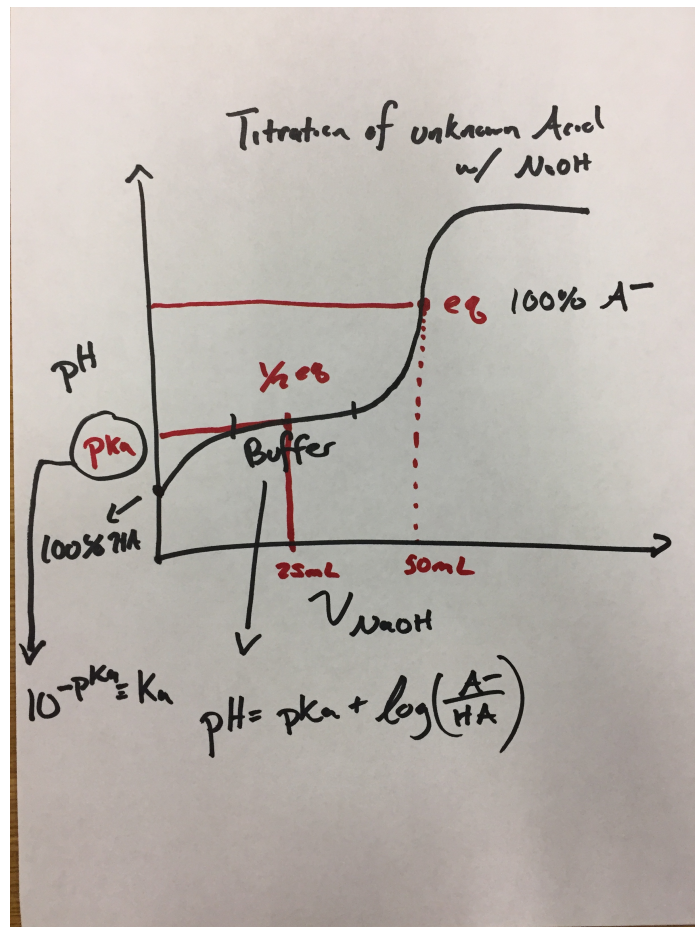 Titration of unknown Acid
w/ NaOH
eq 100% A⁻
pH
1/2 eq
pKa
Buffer
100% HA
25mL
50mL
V NaOH
10^-pKa = Ka
pH = pKa + log(A⁻/HA)